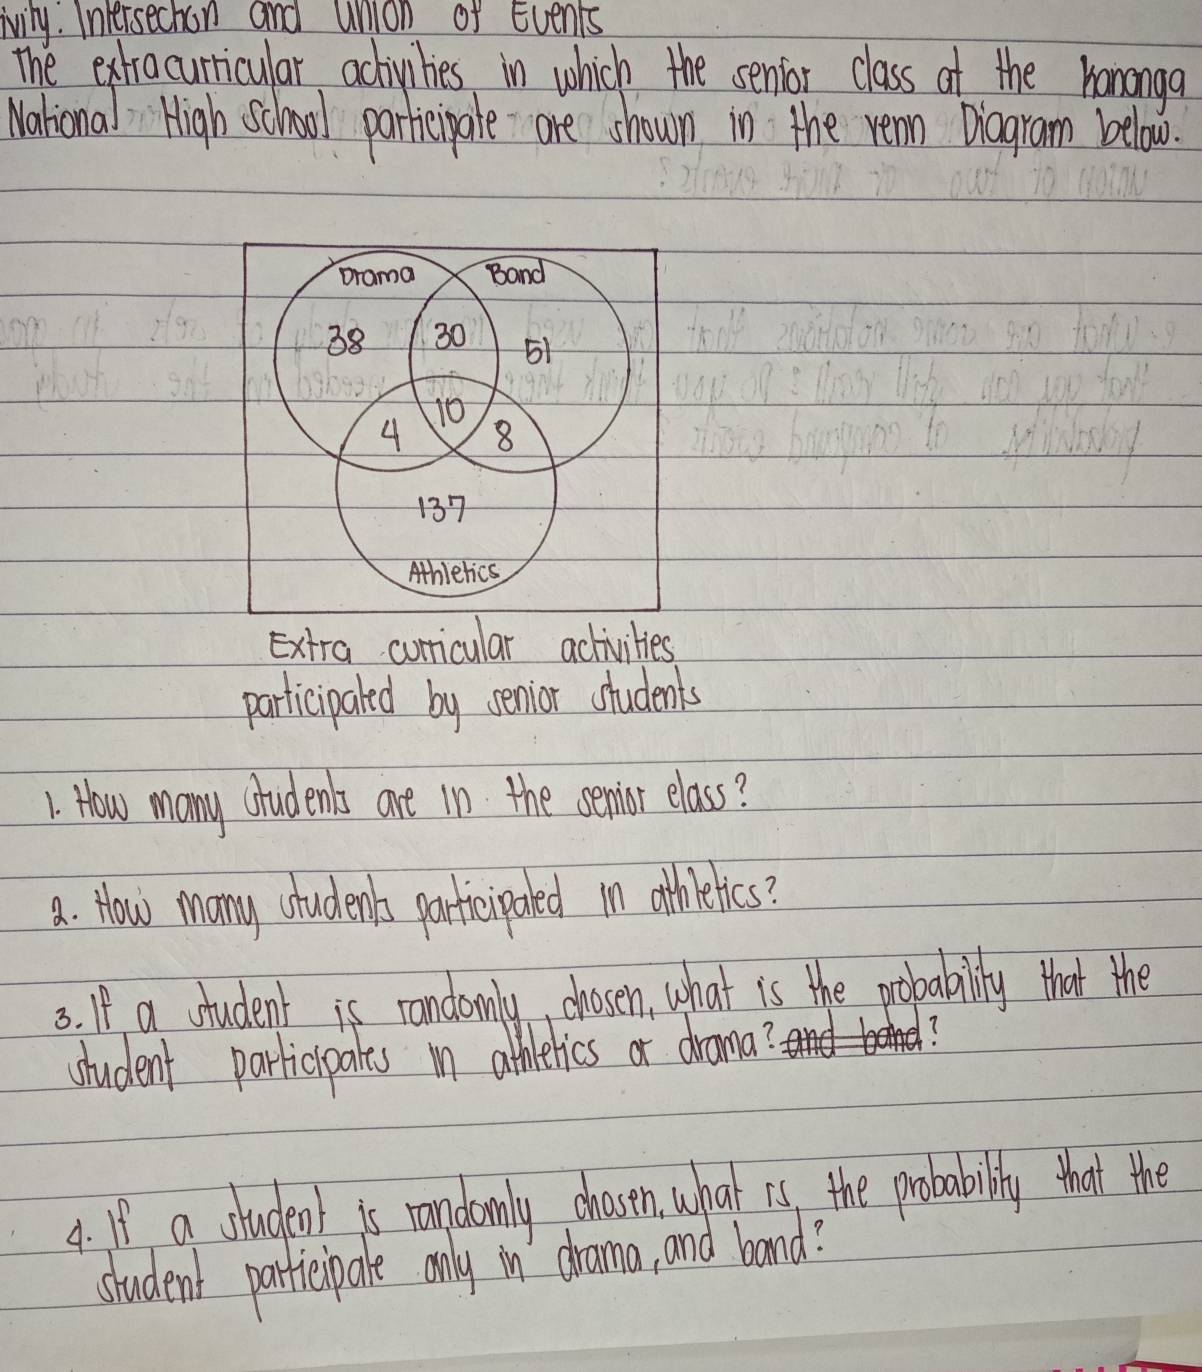 ivity: Intersection and union of Events
The extracurricular activities in which the senior class at the Kananga
National High School participate are shown in the venn Diagram below.
Drama Band
38 30 51
10
4 8
137
Athletics
Extra curricular activities
participated by senior students
1. How many students are in the senior class?
2. How many students participated in athletics?
3. If a student is randomly chosen, what is the probability that the
student participates in athletics or drama? and band?
4. If a student is randomly chosen, what is the probability that the
student participate only in drama, and band?